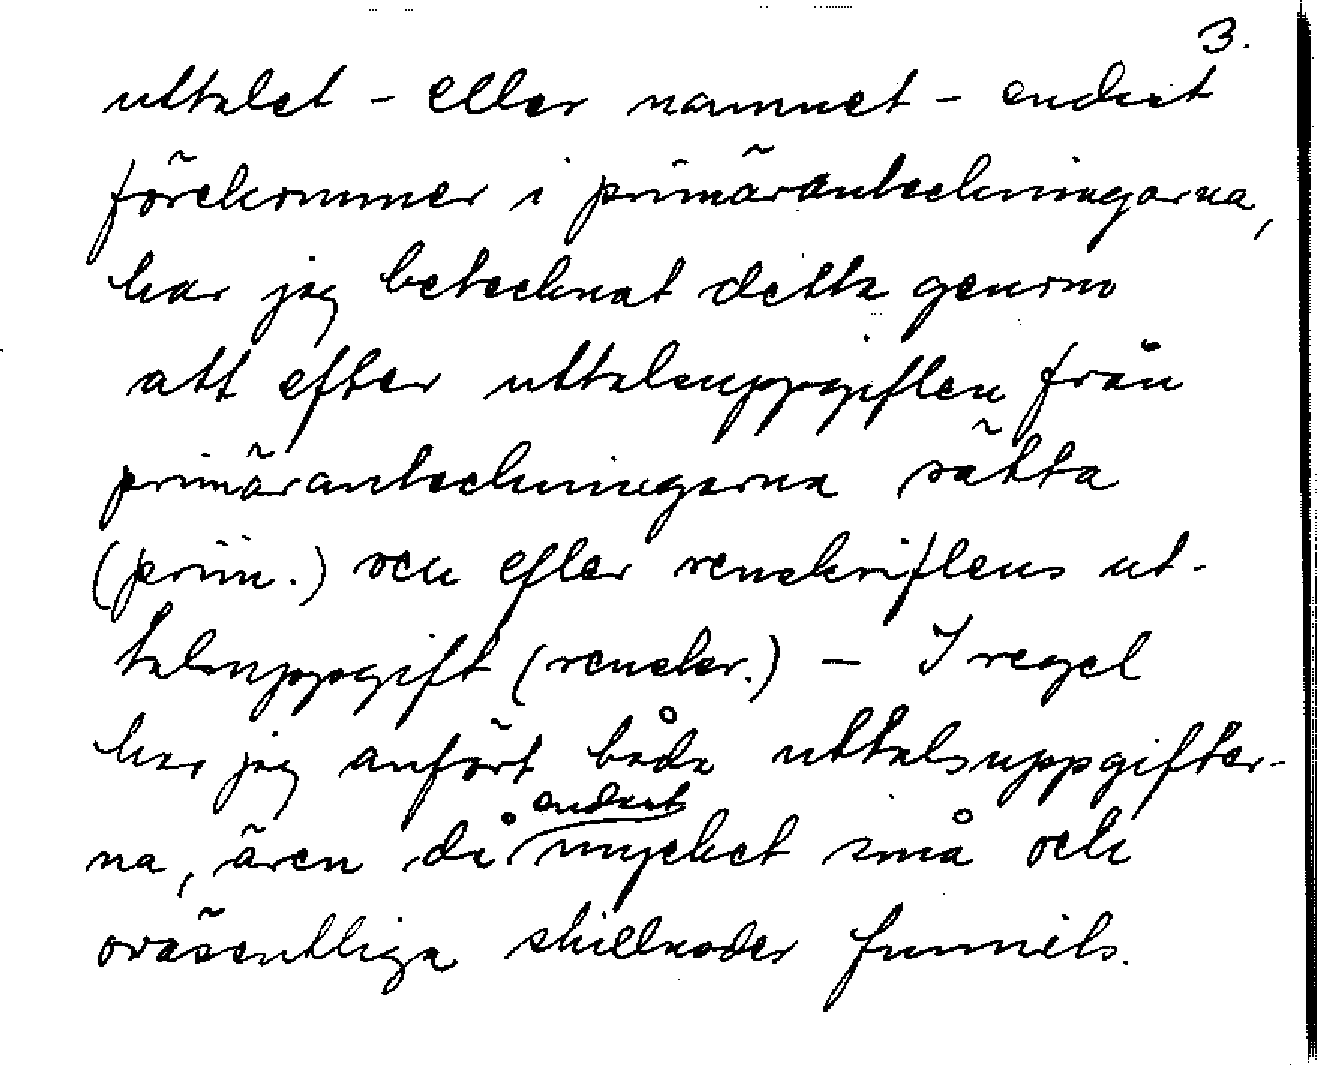 3.
uttalet - eller namnet - endast
förekommer i primäranteckningarna,
har jag betecknat detta genom
att efter uttalsuppgiften från
primäranteckningarna sätta
(prim.) och efter renskriftens ut-
talsuppgift (renskr.) — I regel
har jag anfört båda uttalsuppgifter-
na, även då endast mycket små och
oväsentliga skillnader funnits.